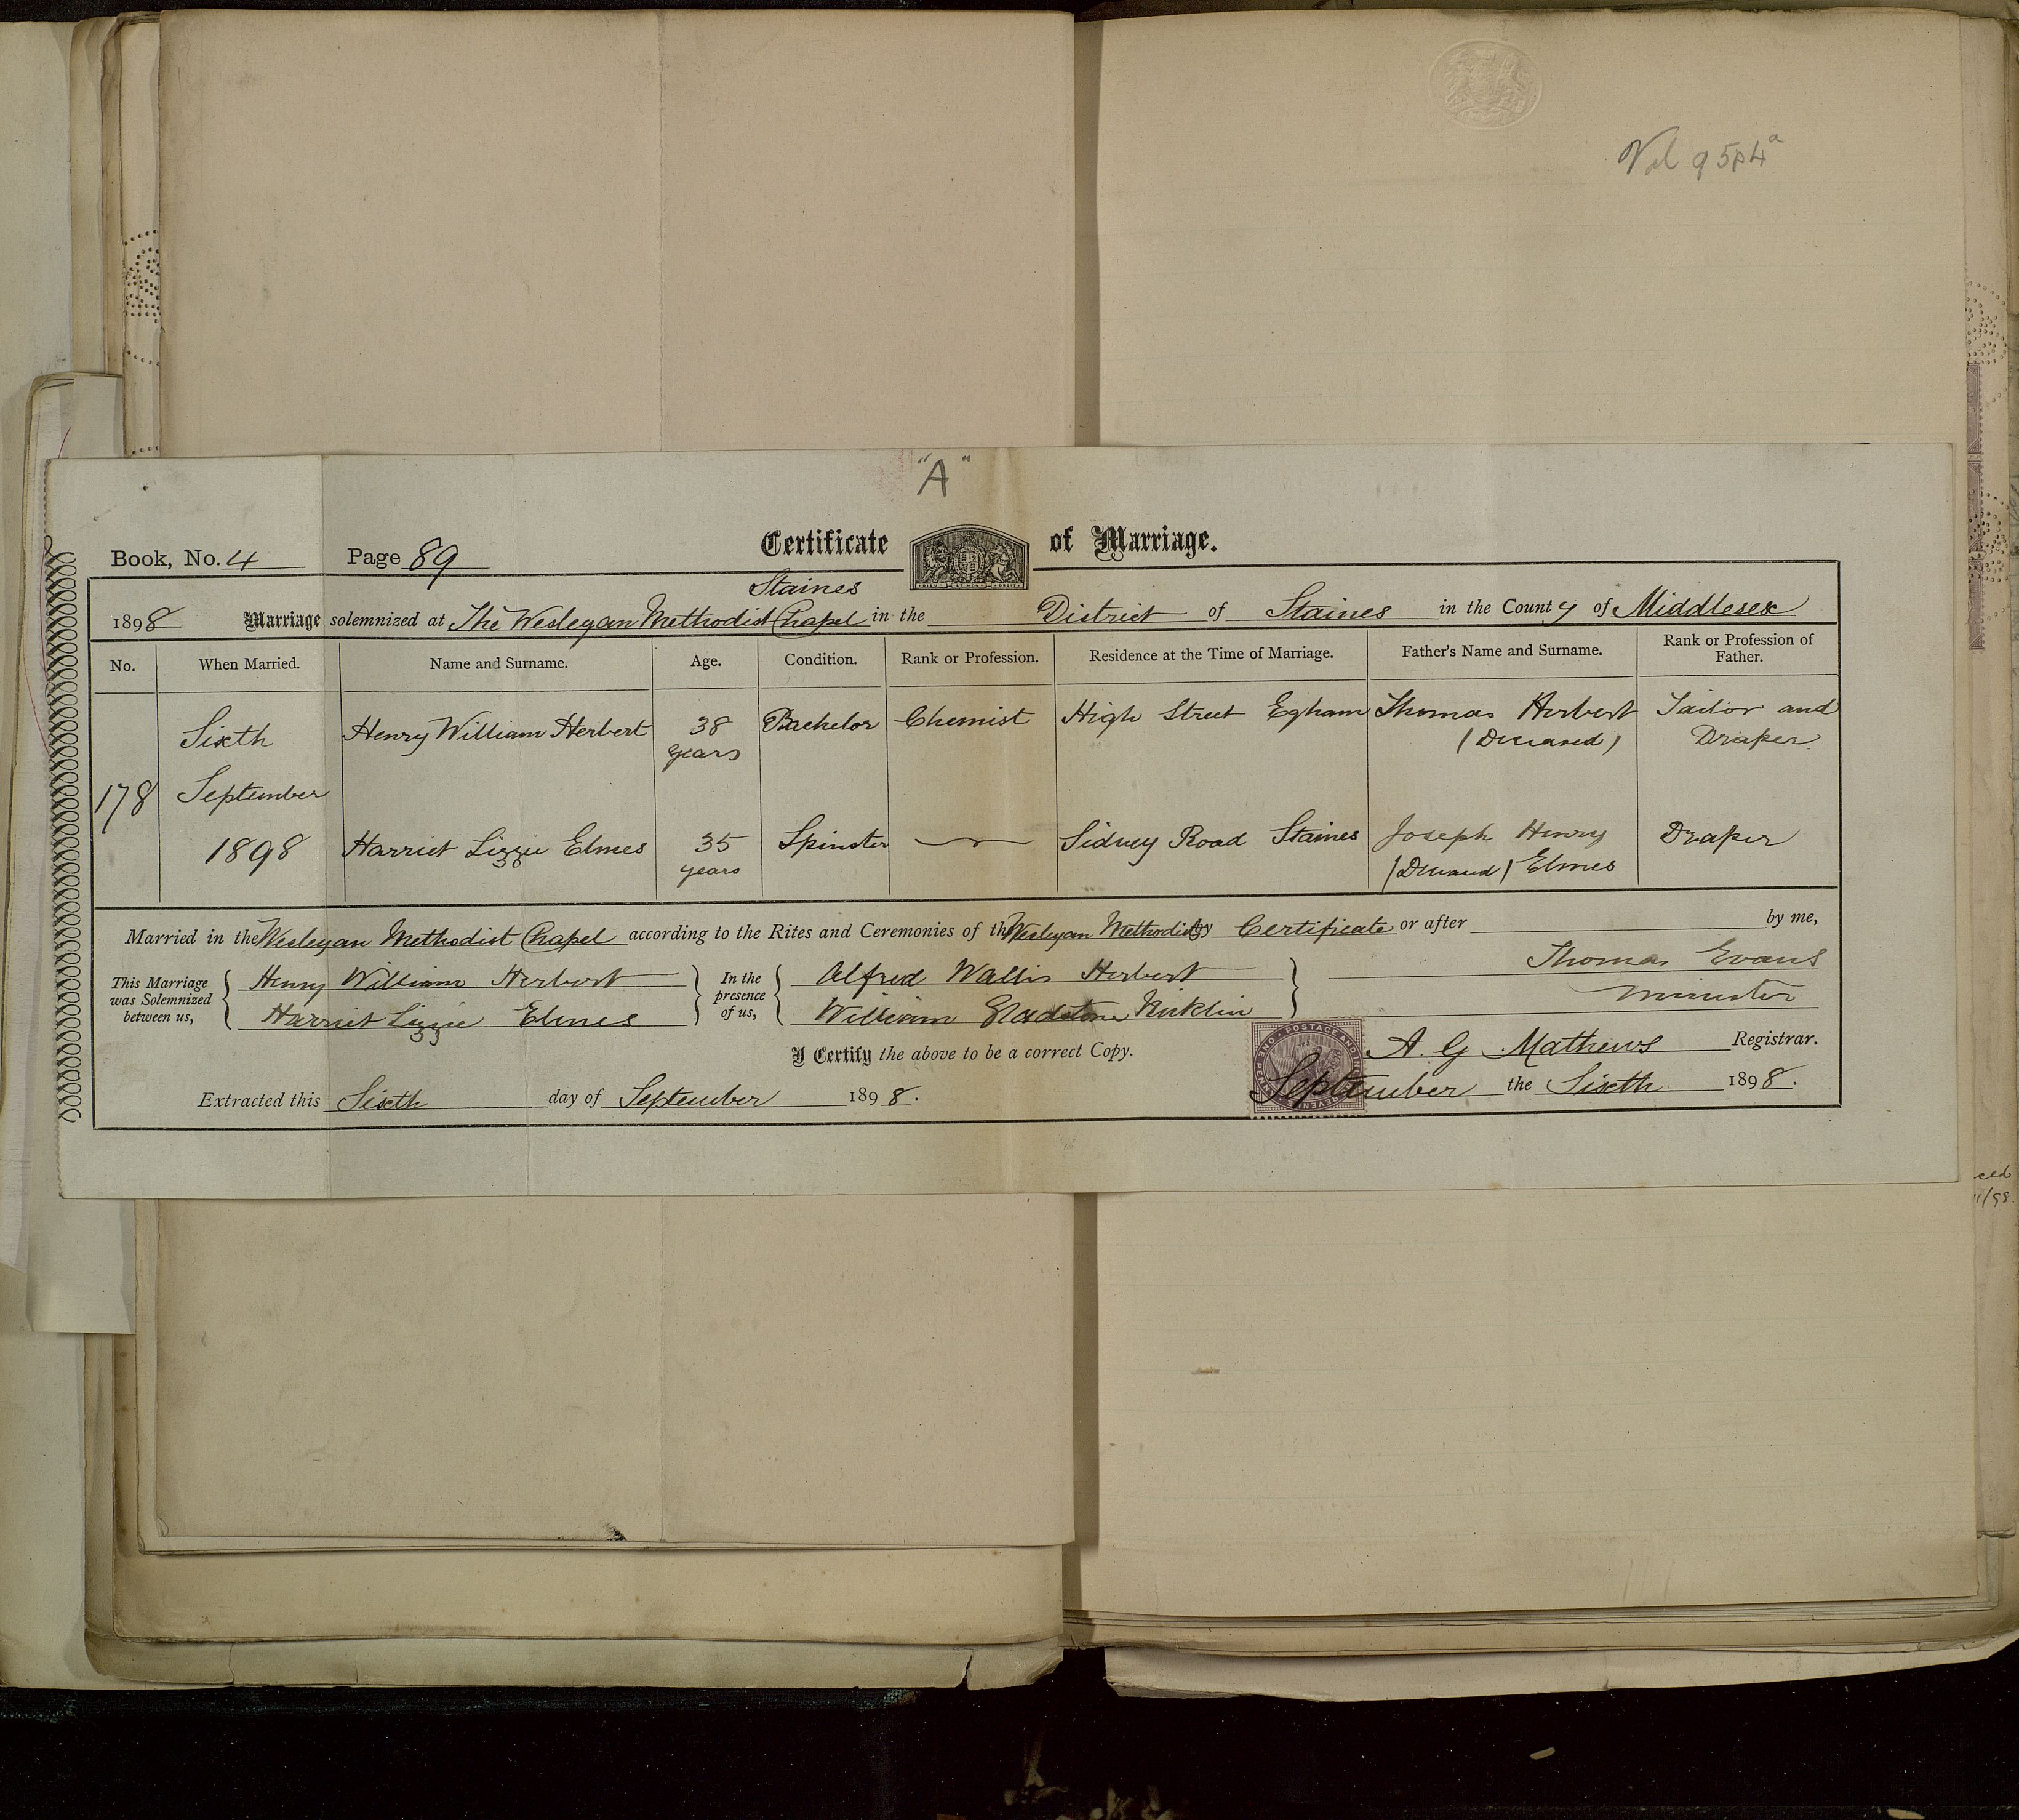 Vol 95p4a
"A"
Certificate of Marriage.
Book, No. 4 Page 89
Staines
1898 Marriage solemnized at The Wesleyan Methodist Chapel in the District of Staines in the County of Middlesex
No. When Married. Name and Surname. Age. Condition. Rank or Profession. Residence at the Time of Marriage. Father's Name and Surname. Rank or Profession of Father.
178 Sixth September 1898
Henry William Herbert 38 years Bachelor Chemist High Street Egham Thomas Herbert (Deceased) Tailor and Draper
Harriet Lizzie Elmes 35 years Spinster Sidney Road Staines Joseph Henry Elmes (Deceased) Draper
Married in the Wesleyan Methodist Chapel according to the Rites and Ceremonies of the Wesleyan Methodists by Certificate or after by me,
This Marriage was Solemnized between us, Henry William Herbert
Harriet Lizzie Elmes
In the presence of us, Alfred Wallis Herbert
William Gladstone Nicklin
Thomas Evans
Minister
I Certify the above to be a correct Copy.
A. G. Mathews Registrar.
Extracted this Sixth day of September 1898.
September the Sixth 1898.
POSTAGE AND
ced
/98.